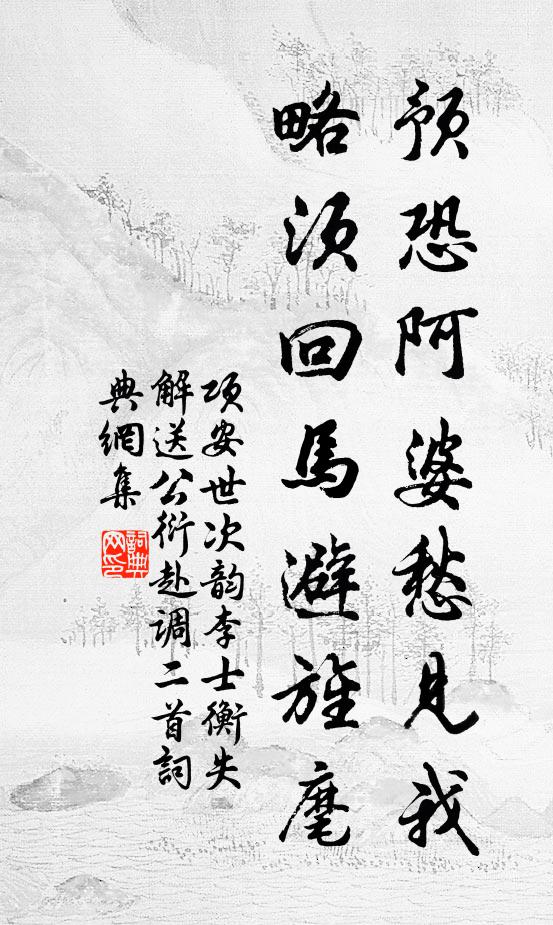 預恐阿婆愁見我
略須回馬避旌麾
项安世次韵李士衡失
解送公衍赴调二首詞
典網集
詞典网印